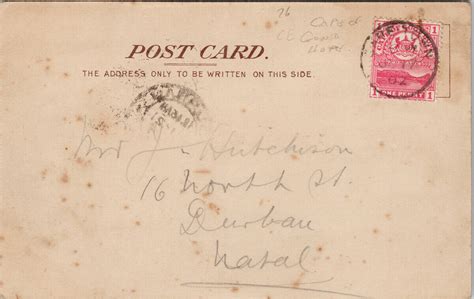 26
Cape of
Good
Hope
POST CARD.
THE ADDRESS ONLY TO BE WRITTEN ON THIS SIDE.
1
1
ONE PENNY
Mr J. Hutchison
16 North St.
Durban
Natal